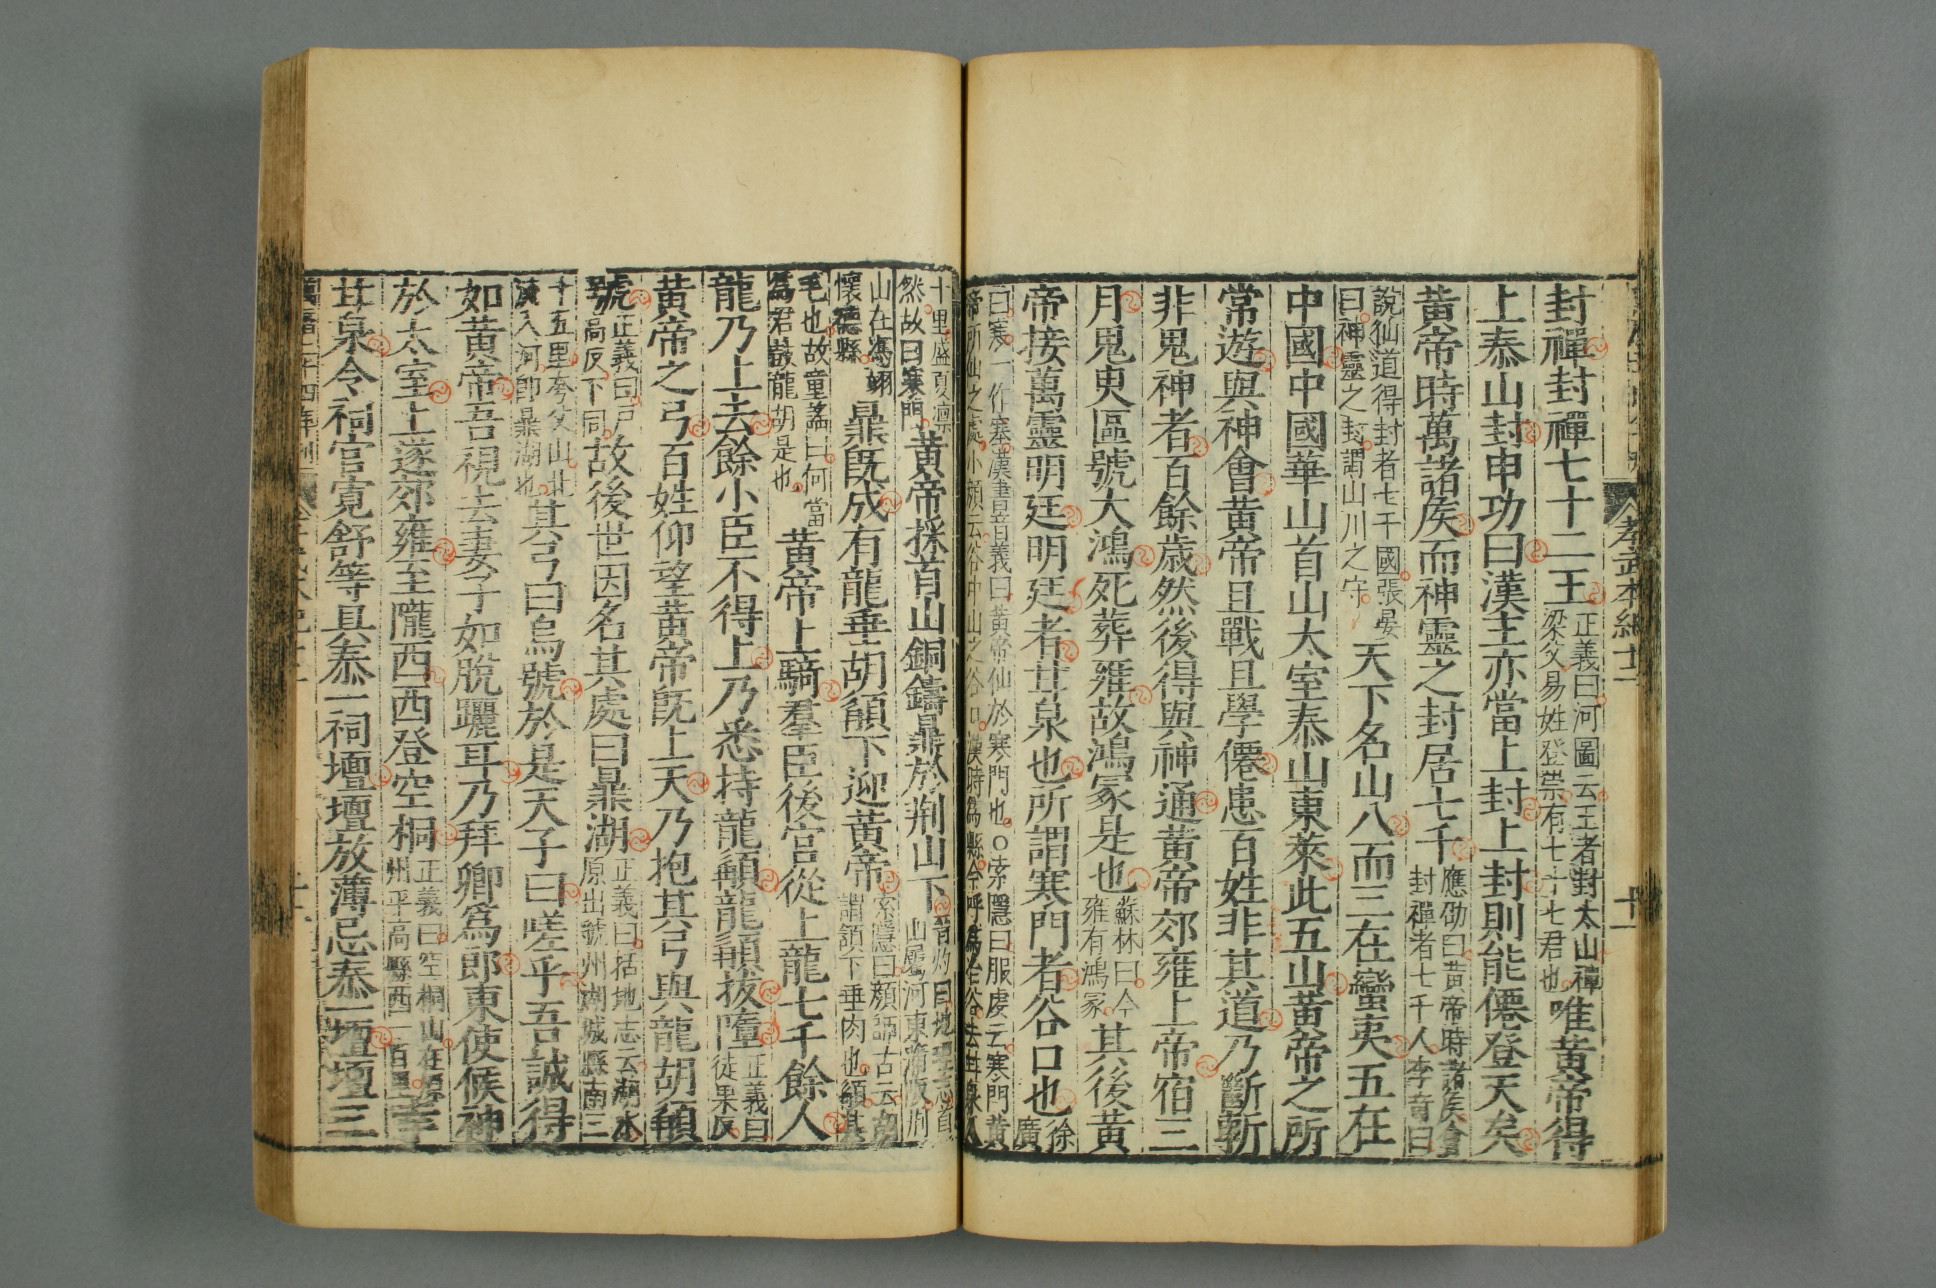 孝武本紀十二
十一
封禪封禪七十二王正義曰河圖云王者封太山禪梁父易姓登崇有七十七君也唯黃帝得
上泰山封申功曰漢主亦當上封上封則能僊登天矣
黃帝時萬諸侯而神靈之封居七千應劭曰黃帝時諸侯會封禪者七千人李奇曰
說仙道得封者七千國張晏曰神靈之封謂山川之守天下名山八而三在蠻夷五在
中國中國華山首山太室泰山東萊此五山黃帝之所
常遊與神會黃帝且戰且學僊患百姓非其道乃斷斬
非鬼神者百餘歲然後得與神通黃帝郊雍上帝宿三
月鬼臾區號大鴻死葬雍故鴻冢是也蘇林曰今雍有鴻冢其後黃
帝接萬靈明廷明廷者甘泉也所謂寒門者谷口也徐廣
曰寒一作塞漢書音義曰黃帝仙於寒門也○索隱曰服虔云寒門黃帝所仙之處小顏云谷中山之谷口漢時爲縣今呼爲冶谷去甘泉八
十里盛夏凛然故曰寒門黃帝採首山銅鑄鼎於荆山下晉灼曰地理志首山屬河東蒲坂荆
山在馮翊懷德縣鼎既成有龍垂胡䫇下迎黃帝索隱曰顏師古云胡謂頷下垂肉也䫇其
毛也故童謠曰何當爲君鼓龍胡是也黃帝上騎羣臣後宮從上龍七千餘人
龍乃上去餘小臣不得上乃悉持龍䫇龍䫇拔墮正義曰徒果反
黃帝之弓百姓仰望黃帝既上天乃抱其弓與龍胡䫇
號正義曰戶高反下同故後世因名其處曰鼎湖正義曰括地志云湖水原出虢州湖城縣南三
十五里夸父山北流入河卽鼎湖也其弓曰烏號於是天子曰嗟乎吾誠得
如黃帝吾視去妻子如脫躧耳乃拜卿爲郎東使候神
於太室上遂郊雍至隴西西登空桐正義曰空桐山在原州平高縣西一百里幸
甘泉令祠官寬舒等具泰一祠壇壇放薄忌泰一壇壇三